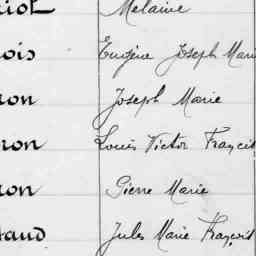 riot Melaine
ois Eugène Joseph Marie
ron Joseph Marie
ron Louis Victor François
ron Pierre Marie
taud Jules Marie François